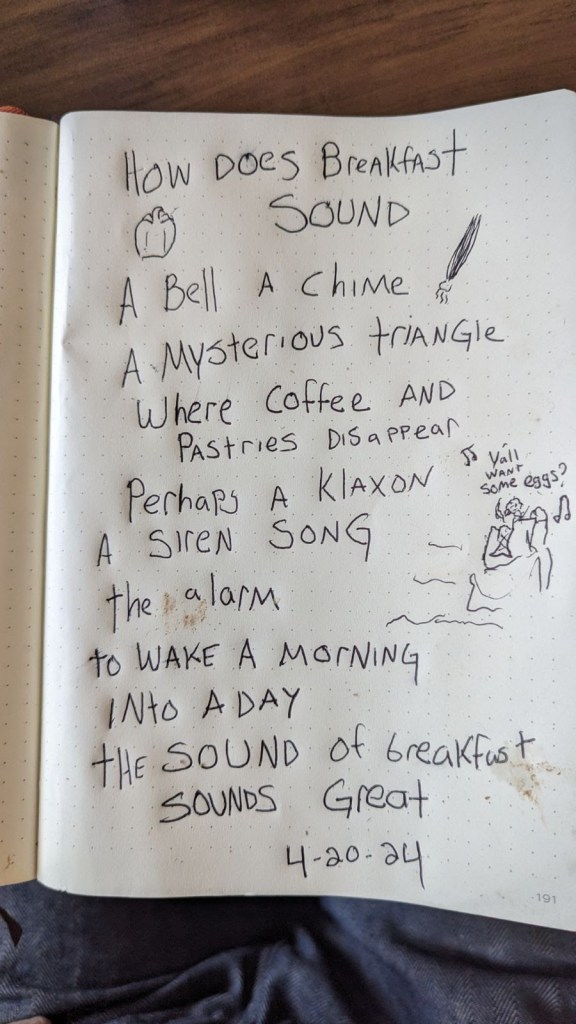 How Does Breakfast
SOUND
A Bell A Chime
A Mysterious triANGle
Where Coffee AND
PAStries DISappear
♫ Yall
WANT
some eggs? ♫
Perhaps A KlAXON
A SIreN SONG
the alarm
to WAKE A MOrNING
INto A DAY
tHE SOUND of breakfast
SOUNDS Great
4-20-24
191